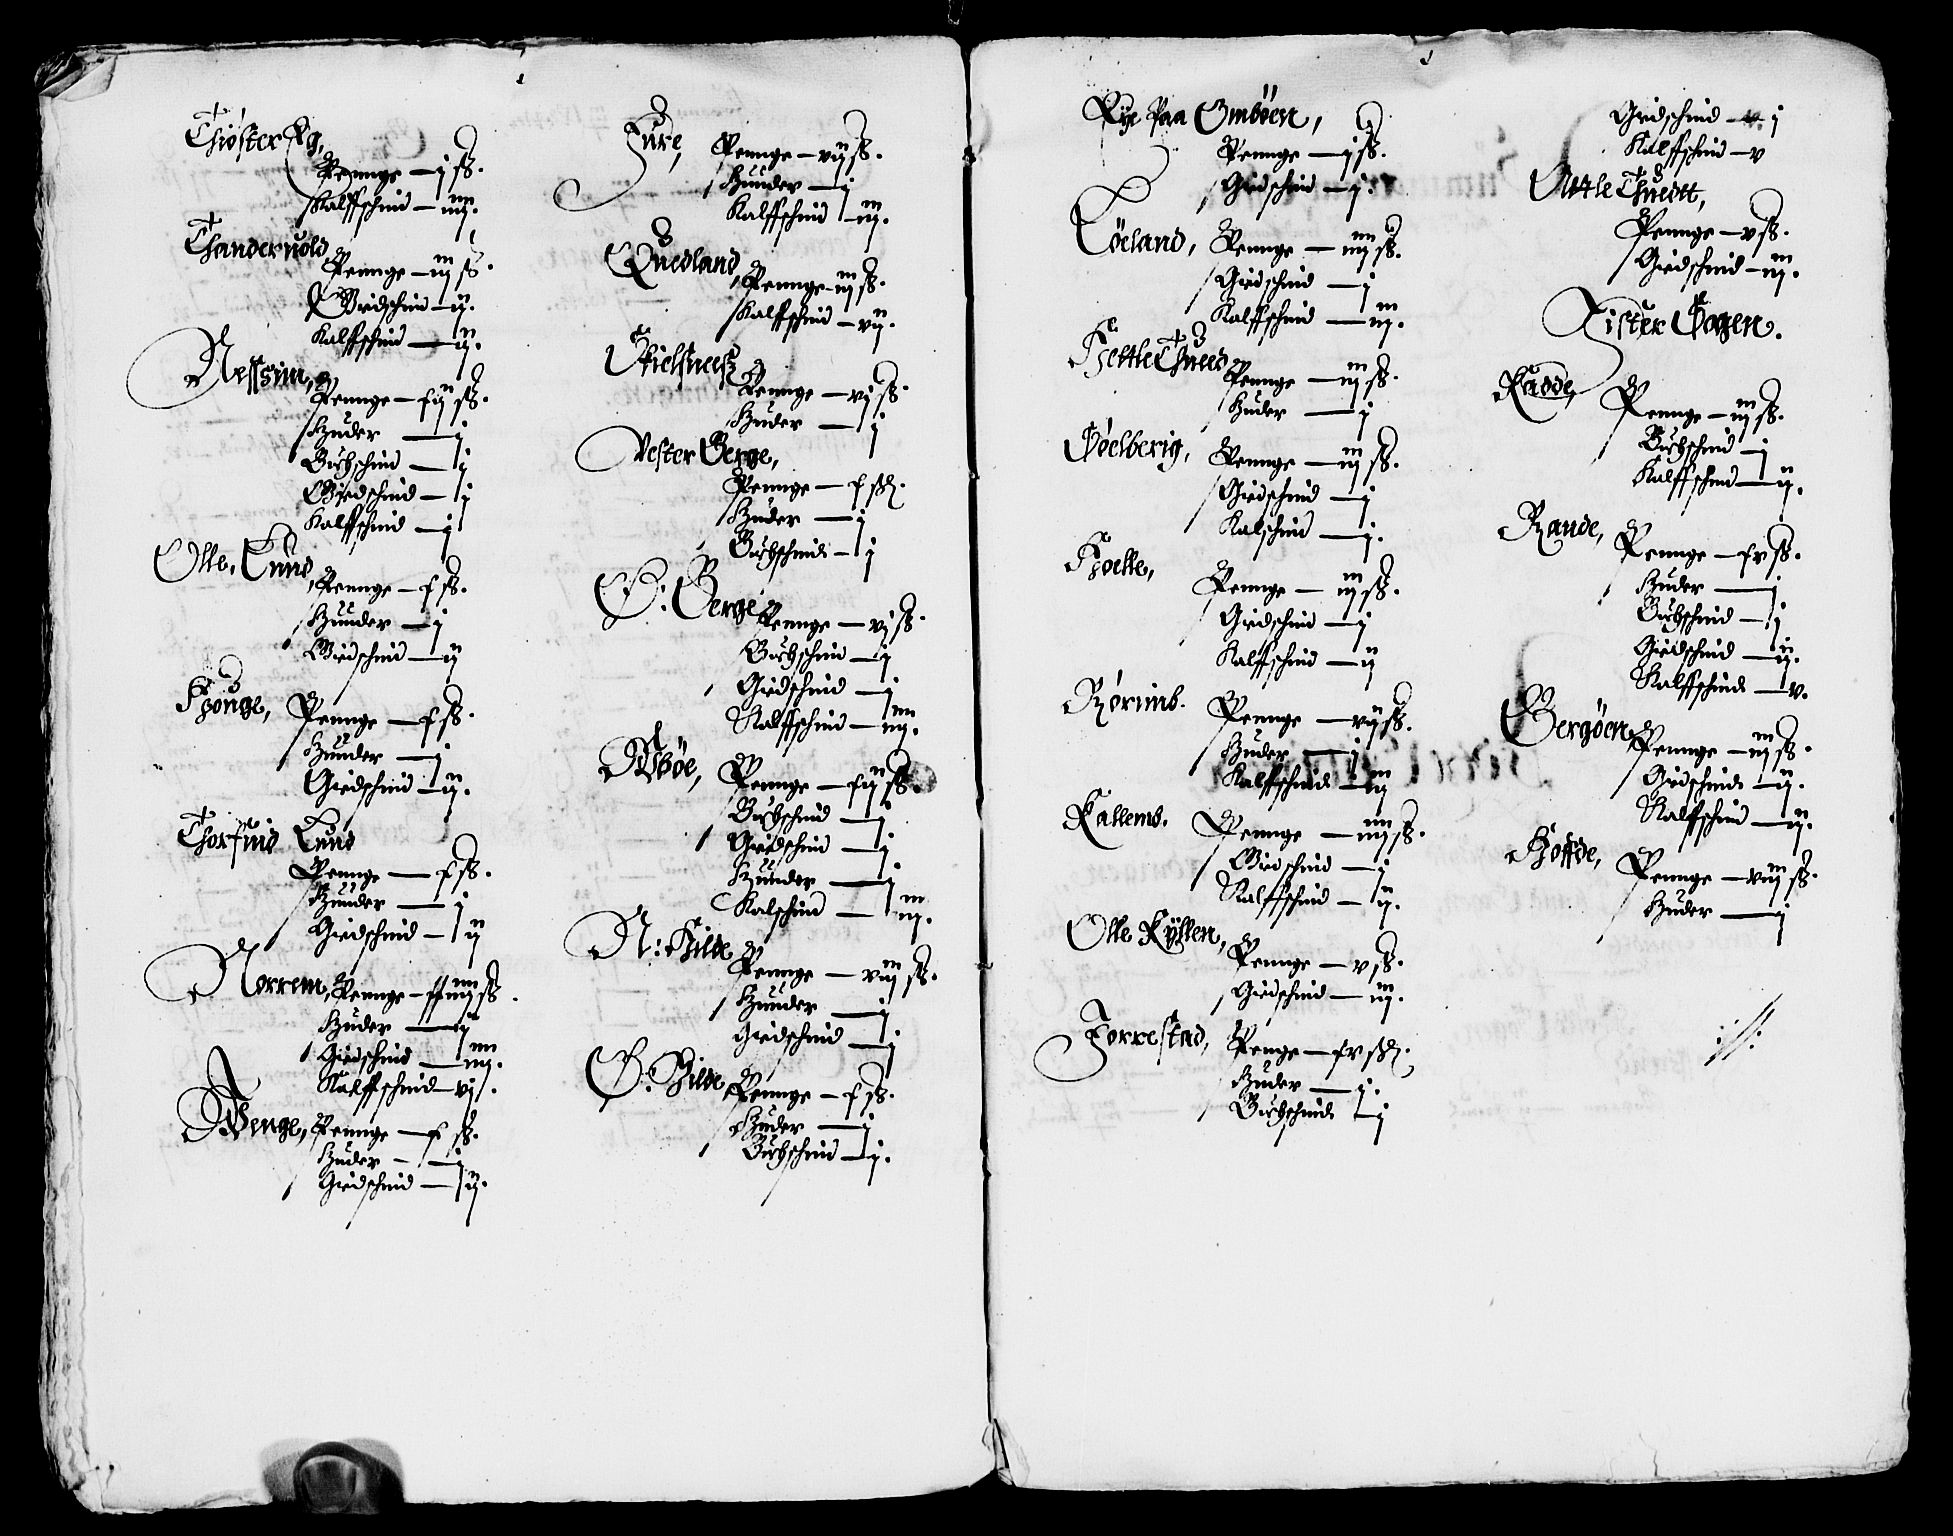 Thiøster Ag,
Pennge — j ß.
Kalffschind — iiij.
Thanderuold,
Pennge — iij ß.
Giedschind — ij.
Kalffschind — ij.
Nessim,
Pennge — fij ß.
Huder — j
Buchschind — j
Giedschind — j
Kalffschind — j
Olle Lund,
Pennge — f ß.
Huuder — j
Giedschind — ij
Houge,
Pennge — f ß.
Huuder — j
Giedschind — ij.
Thorfind Lund
Pennge — f ß.
Huuder — j
Giedschind — ij
Norrem,
Pennge — ffiiij ß.
Huder — ij
Giedschind — iiij.
Kalffschind — vj.
Wenge,
Pennge — f ß.
Huder — j
Giedschind — ij.
Fure,
Pennge — vij ß.
Huuder — j
Kalffschind — iij.
Quedland,
Pennge — iij ß.
Kalffschind — vij.
Skielsness
Pennge — vj ß.
Huder — j
Vester Berge,
Pennge — f ßd.
Huder — j
Buchschind — j
Ø: Berge
Pennge — vj ß.
Buchschind — j
Giedschind — j
Kalffschind — iiij.
Wbøe,
Pennge — fij ß.
Buchschind — j
Giedschind — j.
Huuder — j
Kalschind — iij.
N: Hilde
Pennge — viij ß.
Huuder — j
Giedschind — j.
Ø: Hilde
Pennge — f ß.
Huder — j
Buchschind — j.
Rye Paa Ombøen,
Pennge — j ß.
Giedschind — j.
Løeland,
Pennge — iiij ß.
Giedschind — j
Kalffschind — iij.
Hettle Thued
Pennge — iij ß.
Huder — j
Søelberig,
Pennge — iij ß.
Giedschind — j
Kalschind — j.
Hoelle,
Pennge — iij ß.
Giedschind — j
Kalffschind — ij
Rørimb.
Pennge — vij ß.
Huder — j
Kalffschind — iij
Kallemb.
Pennge — iiij ß.
Giedschind — j
Kalffschind — ij.
Olle Kyllen,
Pennge — v ß.
Giedschind — iij.
Forrestad,
Penge — fv ßd.
Huder — j.
Buchschind — j
Giedschind — j
Kalffschind — v
Attle Thuedtt,
Pennge — v ß.
Giedschind — iij.
Tister Sogen.
Radde,
Pennge — iij ß.
Buchschind — j
Kalffschind — ij.
Rande,
Pennge — fv ß.
Huder — j
Buchschind — j
Giedschind — ij.
Kalffschind — v.
Bergøen
Pennge — iij ß.
Giedschind — ij.
Kalffschind — ij.
Hoffde,
Pennge — viij ß.
Huder — j